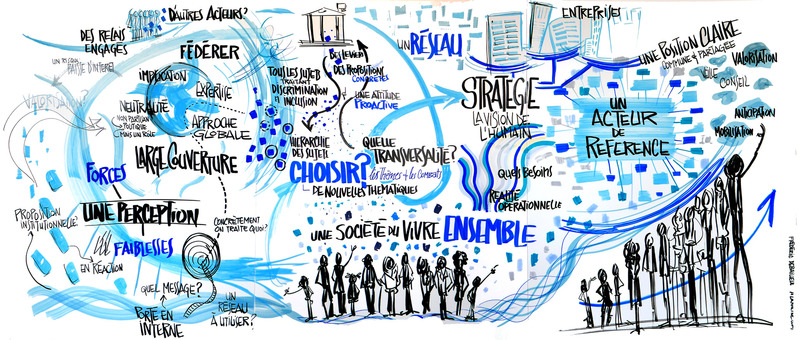 D'AUTRES ACTEURS?
DES RELAIS
ENGAGÉS
FÉDÉRER
BAISSE D'INTÉRÊT
VALORISATION
IMPLICATION
EXPERTISE
NEUTRALITÉ
NON PARTISAN
POLITIQUE
MAIS UN RÔLE
APPROCHE
GLOBALE
LARGE COUVERTURE
FORCES
UNE PERCEPTION
FAIBLESSES
PROPOSITION
INSTITUTIONNELLE
EN RÉACTION
CONCRÈTEMENT
ON TRAITE QUOI?
QUEL MESSAGE?
PORTÉ EN
INTERNE
UN
RÉSEAU
À UTILISER?
TOUS LES SUJETS
TRAITANT
DISCRIMINATION
& INCLUSION
HIÉRARCHIE
DES SUJETS
DES LEVIERS
DES PROPOSITIONS
CONCRÈTES
UNE ATTITUDE
PROACTIVE
QUELLE
TRANSVERSALITÉ?
CHOISIR?
les thèmes & les combats
DE NOUVELLES THÉMATIQUES
UNE SOCIÉTÉ DU VIVRE ENSEMBLE
UN RÉSEAU
ENTREPRISES
STRATÉGIE
LA VISION DE
L'HUMAIN
QUELS BESOINS
RÉALITÉ
OPÉRATIONNELLE
UN
ACTEUR
DE
RÉFÉRENCE
UNE POSITION CLAIRE
COMMUNE & PARTAGÉE
VALORISATION
VEILLE
CONSEIL
ANTICIPATION
MOBILISATION